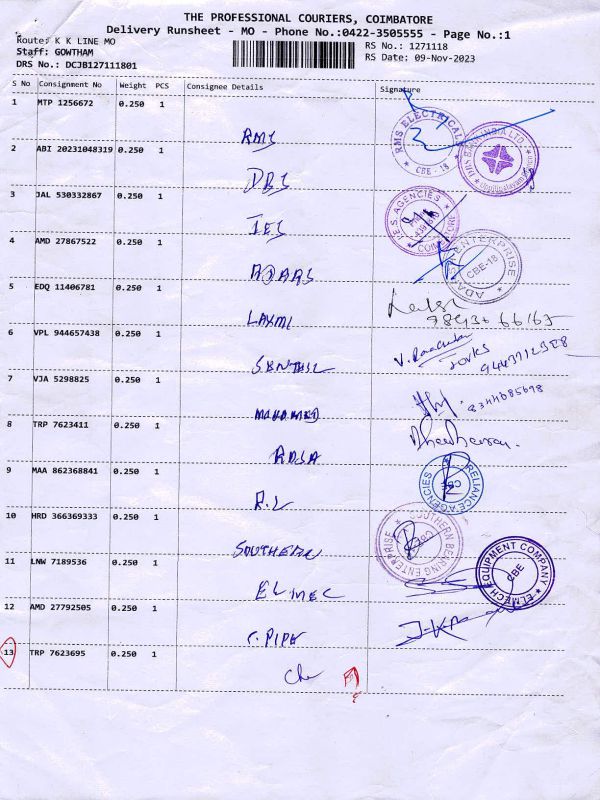 THE PROFESSIONAL COURIERS, COIMBATORE
Delivery Runsheet - MO - Phone No.:0422-3505555 - Page No.:1
Route: K K LINE MO
Staff: GOWTHAM
DRS No.: DCJB127111801
RS No.: 1271118
RS Date: 09-Nov-2023
S No Consignment No Weight PCS Consignee Details Signature
1 MTP 1256672 0.250 1
RMS
RMS ELECTRICAL CBE - 18
2 ABI 20231048319 0.250 1
DBS
DBS BANK INDIA LTD
3 JAL 530332867 0.250 1
IES
I.E.S. AGENCIES
4 AMD 27867522 0.250 1
ENTERPRISE CBE-18
5 EDQ 11406781 0.250 1
LAXMI
6 VPL 944657438 0.250 1
SENTHIL
7 VJA 5298825 0.250 1
MOHAMED
8 TRP 7623411 0.250 1
9 MAA 862368841 0.250 1
R.L
RELIANCE AGENCIES CBE
10 HRD 366369333 0.250 1
SOUTHERN
SOUTHERN BEARING ENTERPRISE
11 LNW 7189536 0.250 1
ELMEC
ELMECH EQUIPMENT COMPANY CBE
12 AMD 27792505 0.250 1
C. PIPE
J-K
13 TRP 7623695 0.250 1